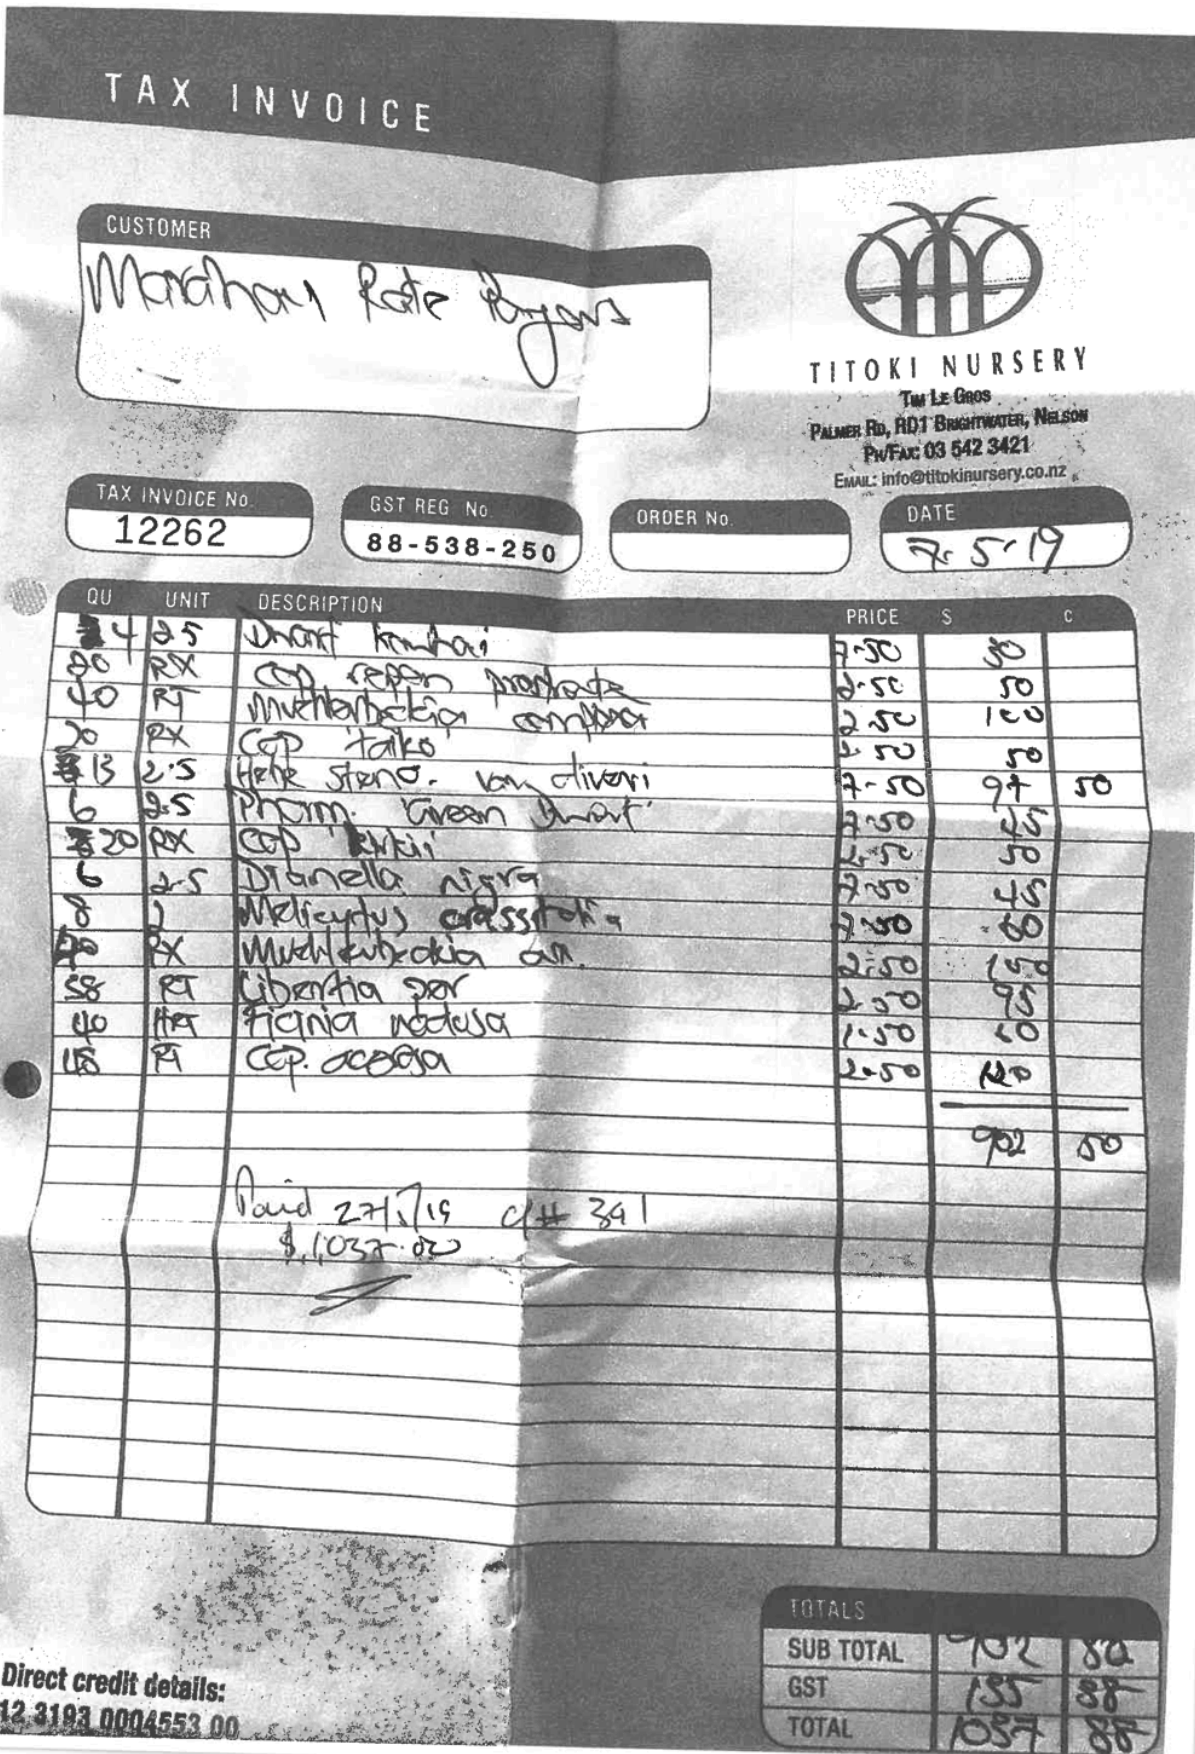 TAX INVOICE
CUSTOMER
Marahau Rate Payers
TITOKI NURSERY
TIM LE GROS
PALMER RD, RD1 BRIGHTWATER, NELSON
PH/FAX: 03 542 3421
EMAIL: info@titokinursery.co.nz
TAX INVOICE No. GST REG No. ORDER No. DATE
12262 88-538-250 7.5.19
QU UNIT DESCRIPTION PRICE $ C
4 2.5 Dwarf kowhai 7-50 30
20 RX cop repen prostrate 2-50 50
40 RT Muehlenbeckia complexa 2-50 100
20 RX Cop 'taiko' 2-50 50
13 2.5 Hebe steno. var oliveri 7-50 97 50
6 2.5 Phorm. 'Green Dwarf' 7-50 45
20 RX Cop kirkii 2-50 50
6 2-5 Dianella nigra 7-50 45
8 Melicytus crassifolia 7-50 60
RX Muehlenbeckia 2-50 150
38 RT Libertia per 2-50 95
40 Ficinia nodosa 1-50 60
48 RT Cop. acerosa 2-50 120
902 50
Paid 27/5/19 c/# 341
$1037.80
TOTALS
SUB TOTAL 902 50
GST 135 38
TOTAL 1037 88
Direct credit details:
12 3193 0004553 00